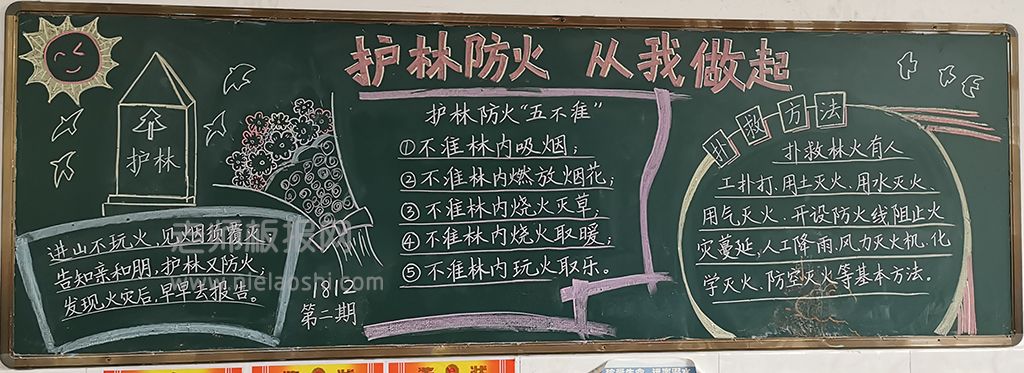 护林防火 从我做起
护林
进山不玩火，见烟须着忙
告知亲和朋，护林又防火；
发现火灾后，早早去报告。
1812
第二期
护林防火“五不准”
①不准林内吸烟；
②不准林内燃放烟花；
③不准林内烧火灭草；
④不准林内烧火取暖；
⑤不准林内玩火取乐。
扑救方法
扑救林火有人
工扑打、用土灭火、用水灭火、
用气灭火、开设防火线阻止火
灾蔓延，人工降雨、风力灭火机、化
学灭火、防空灭火等基本方法。
老师板报网
www.nielaoshi.com